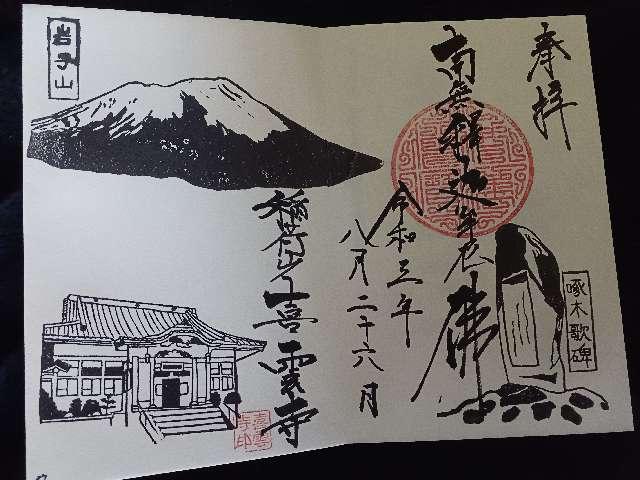 奉拝
南無釋迦牟尼佛
令和三年
八月二十六日
啄木歌碑
岩手山
稲荷山喜雲寺
喜雲寺印